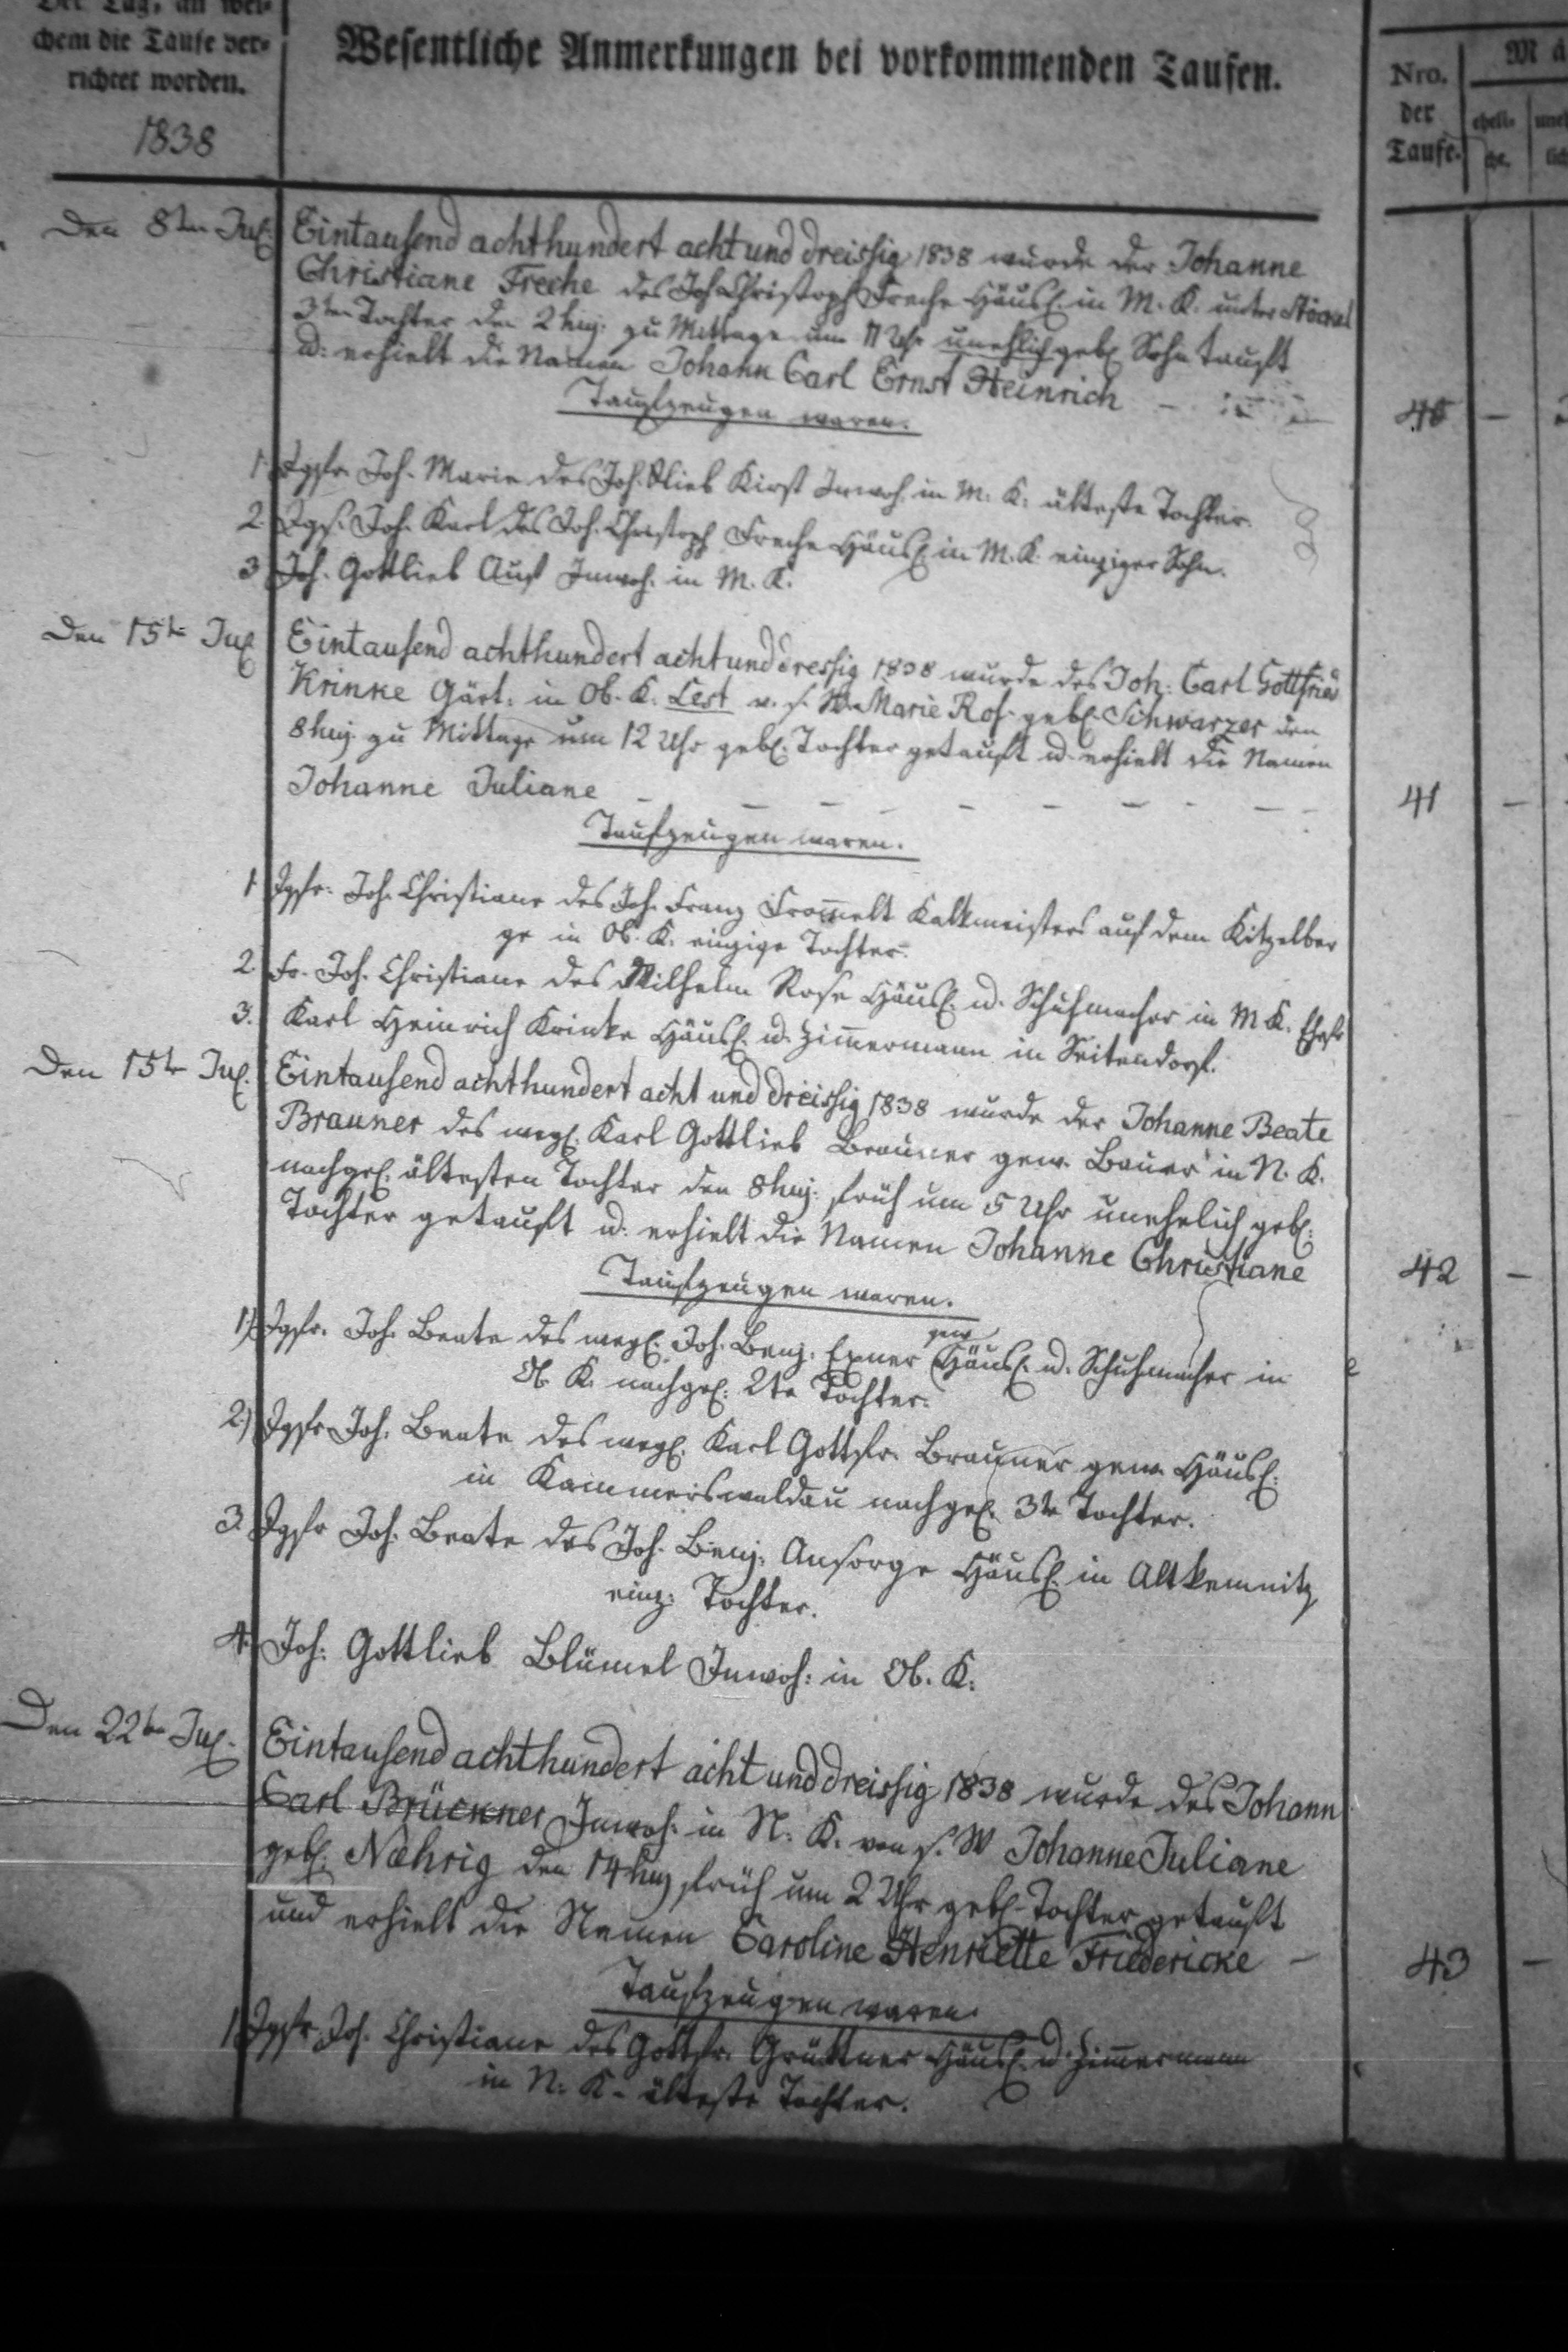 Der Tag, an wel-
chem die Taufe ver-
richtet worden.
1838
Wesentliche Anmerkungen bei vorkommenden Taufen.
Nro.
der
Taufe.
ehel.
che.
Den 8ten Jul.
Eintausend achthundert acht und dreissig 1838 wurde der Johanne
Christiane Freche des Joh. Christoph Freche Häusl. in M. K. unter
3ten Tochter den 2 huj. zu Mittage um 11 Uhr unehlich geb. Sohn tauft
u. erhielt die Namen Johann Carl Ernst Heinrich –
40 –
Taufzeugen waren.
1. Jgfr. Joh. Marie des Joh. Glieb Kirst Inwoh. in M. K. älteste Tochter.
2. Jgs. Joh. Karl des Joh. Christoph Freche Häusl. in M. K. einziger Sohn.
3 Joh. Gottlieb Aust Inwoh. in M. K.
Den 15te Jul
Eintausend achthundert acht und dressig 1838 wurde des Joh. Carl Gottfried
Krinke Gärt. in Ob. K. Lest v. s. W. Marie Ros. geb. Schwarzer den
8 huj. zu Mittage um 12 Uhr geb. Tochter getauft u. erhielt die Namen
Johanne Juliane – – – – – – – –
41 –
Taufzeugen waren.
1 Jgfr. Joh. Christiane des Joh. Franz From̅elt Kalkmeisters auf dem Kitzelber
ge in Ob. K. einzige Tochter.
2. Fr. Joh. Christiane des Wilhelm Rose Häusl. u. Schuhmacher in M K. Ehefr
3. Karl Heinrich Krinke Häusl. u. Zim̅ermann in Seitendorf.
Den 15te Jul.
Eintausend achthundert acht und dreissig 1838 wurde der Johanne Beate
Brauner des wegl. Karl Gottlieb Brauner gew. Bauer in N. K.
nachgel. ältesten Tochter den 8 huj. früh um 5 Uhr unehelich geb.
Tochter getauft u. erhielt die Namen Johanne Christiane
42 –
Taufzeugen waren.
1.) Jgfr. Joh. Beate des wegl. Joh. Benj. Exner gew Häusl. u. Schuhmacher in
Ob. K. nachgel. 2te Tochter.
2.) Jgfr Joh. Beate des wegl. Karl Gottfr. Brauner gew. Häusl.
in Kammerswaldau nachgel. 3te Tochter.
3. Jgfr Joh. Beate des Joh. Benj. Ansorge Häusl. in Altkemnitz
einz. Tochter.
4. Joh. Gottlieb Blümel Inwoh. in Ob. K.
Den 22te Jul.
Eintausend achthundert acht und dreissig 1838 wurde des Johann
Carl Brückner Inwoh. in N. K. von s. W Johanne Juliane
geb. Næhrig den 14 huj früh um 2 Uhr geb. Tochter getauft
und erhielt die Namen Caroline Henriette Friedericke –
43 –
Taufzeugen waren.
1. Jgfr. Joh. Christiane des Gottfr. Grüttner Häusl. u. Zim̅ermann
in N. K. älteste Tochter.